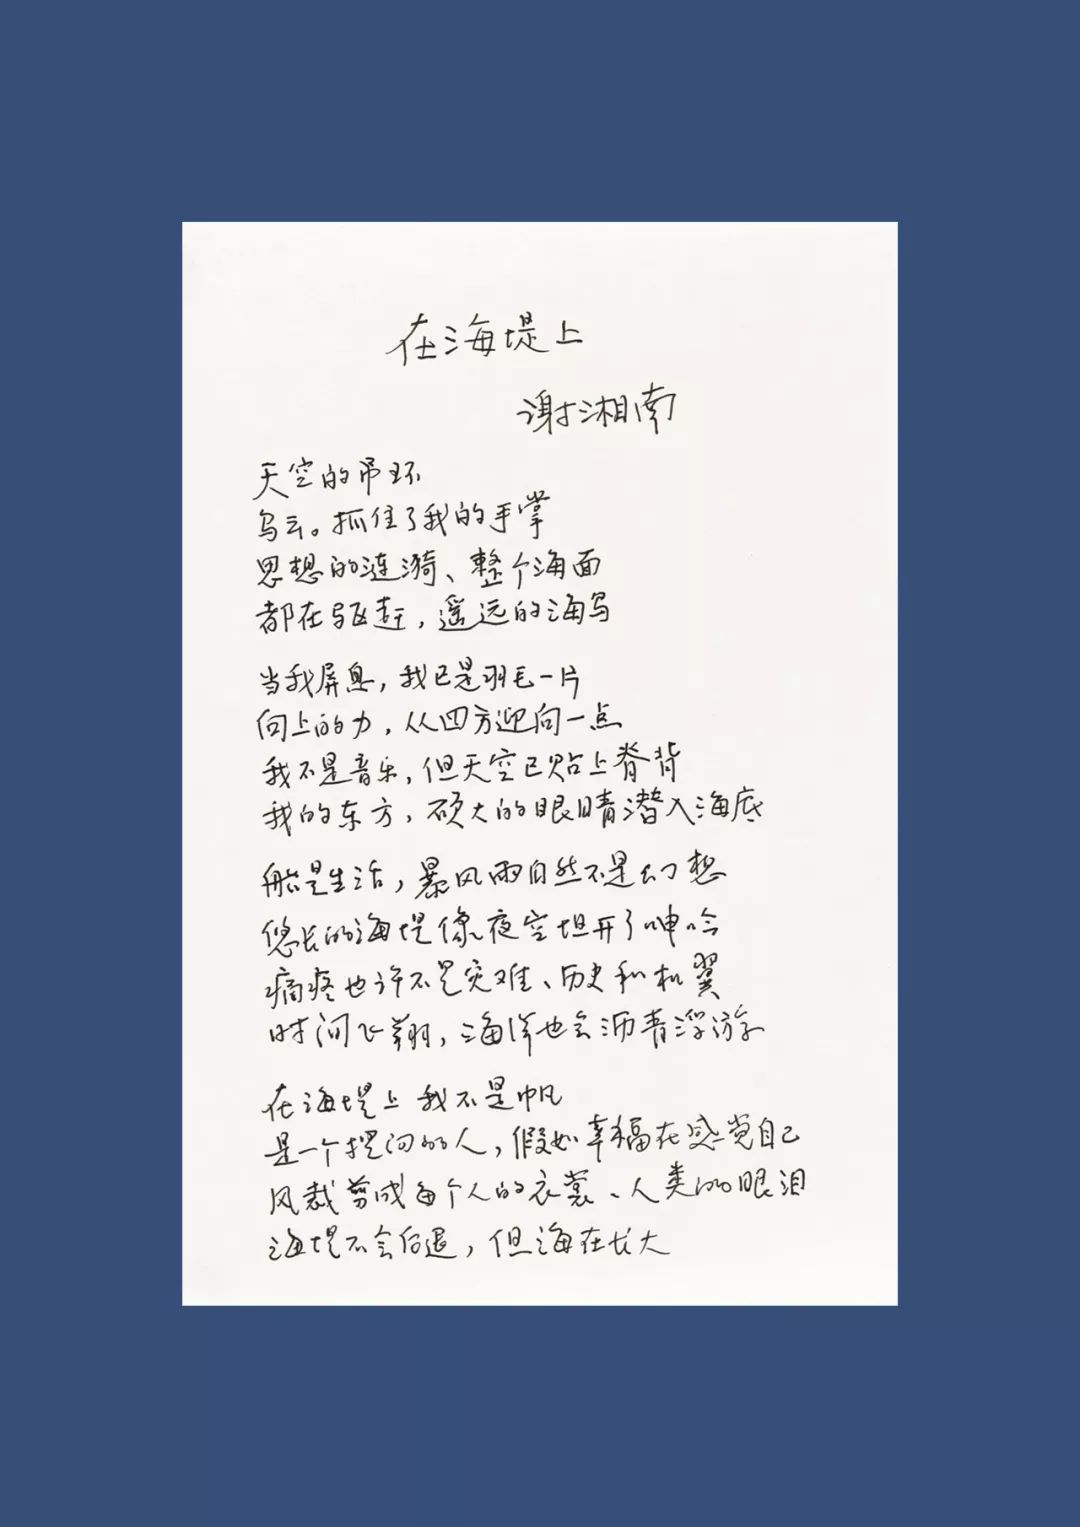 在海堤上
谢湘南
天空的吊环
乌云。抓住了我的手掌
思想的涟漪、整个海面
都在驱赶，遥远的海鸟
当我屏息，我已是羽毛一片
向上的力，从四方迎向一点
我不是音乐，但天空已贴上脊背
我的东方，硕大的眼睛潜入海底
船是生活，暴风雨自然不是幻想
悠长的海堤像夜空坦开了呻吟
病疼也许不是灾难、历史和机翼
时间飞翔，海洋也会沥青浮游
在海堤上 我不是帆
是一个提问的人，假如幸福在感觉自己
风裁剪成每个人的衣裳、人类的眼泪
海堤不会后退，但海在长大